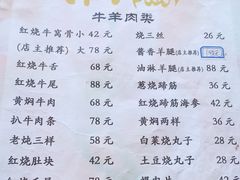 牛羊肉类
红烧牛窝骨 小 42 元
(店主推荐) 大 78 元
红烧牛舌 68 元
红烧牛尾 88 元
黄焖牛肉 68 元
扒牛肉条 68 元
老炖三样 58 元
红烧肚块 58 元
烧三丝 26 元
酱香羊腿(店主推荐)
油淋羊腿(店主推荐) 88 元
葱烧蹄筋 36 元
红烧蹄筋海参 42 元
黄焖两样 36 元
白菜烧丸子 28 元
土豆烧丸子 28 元